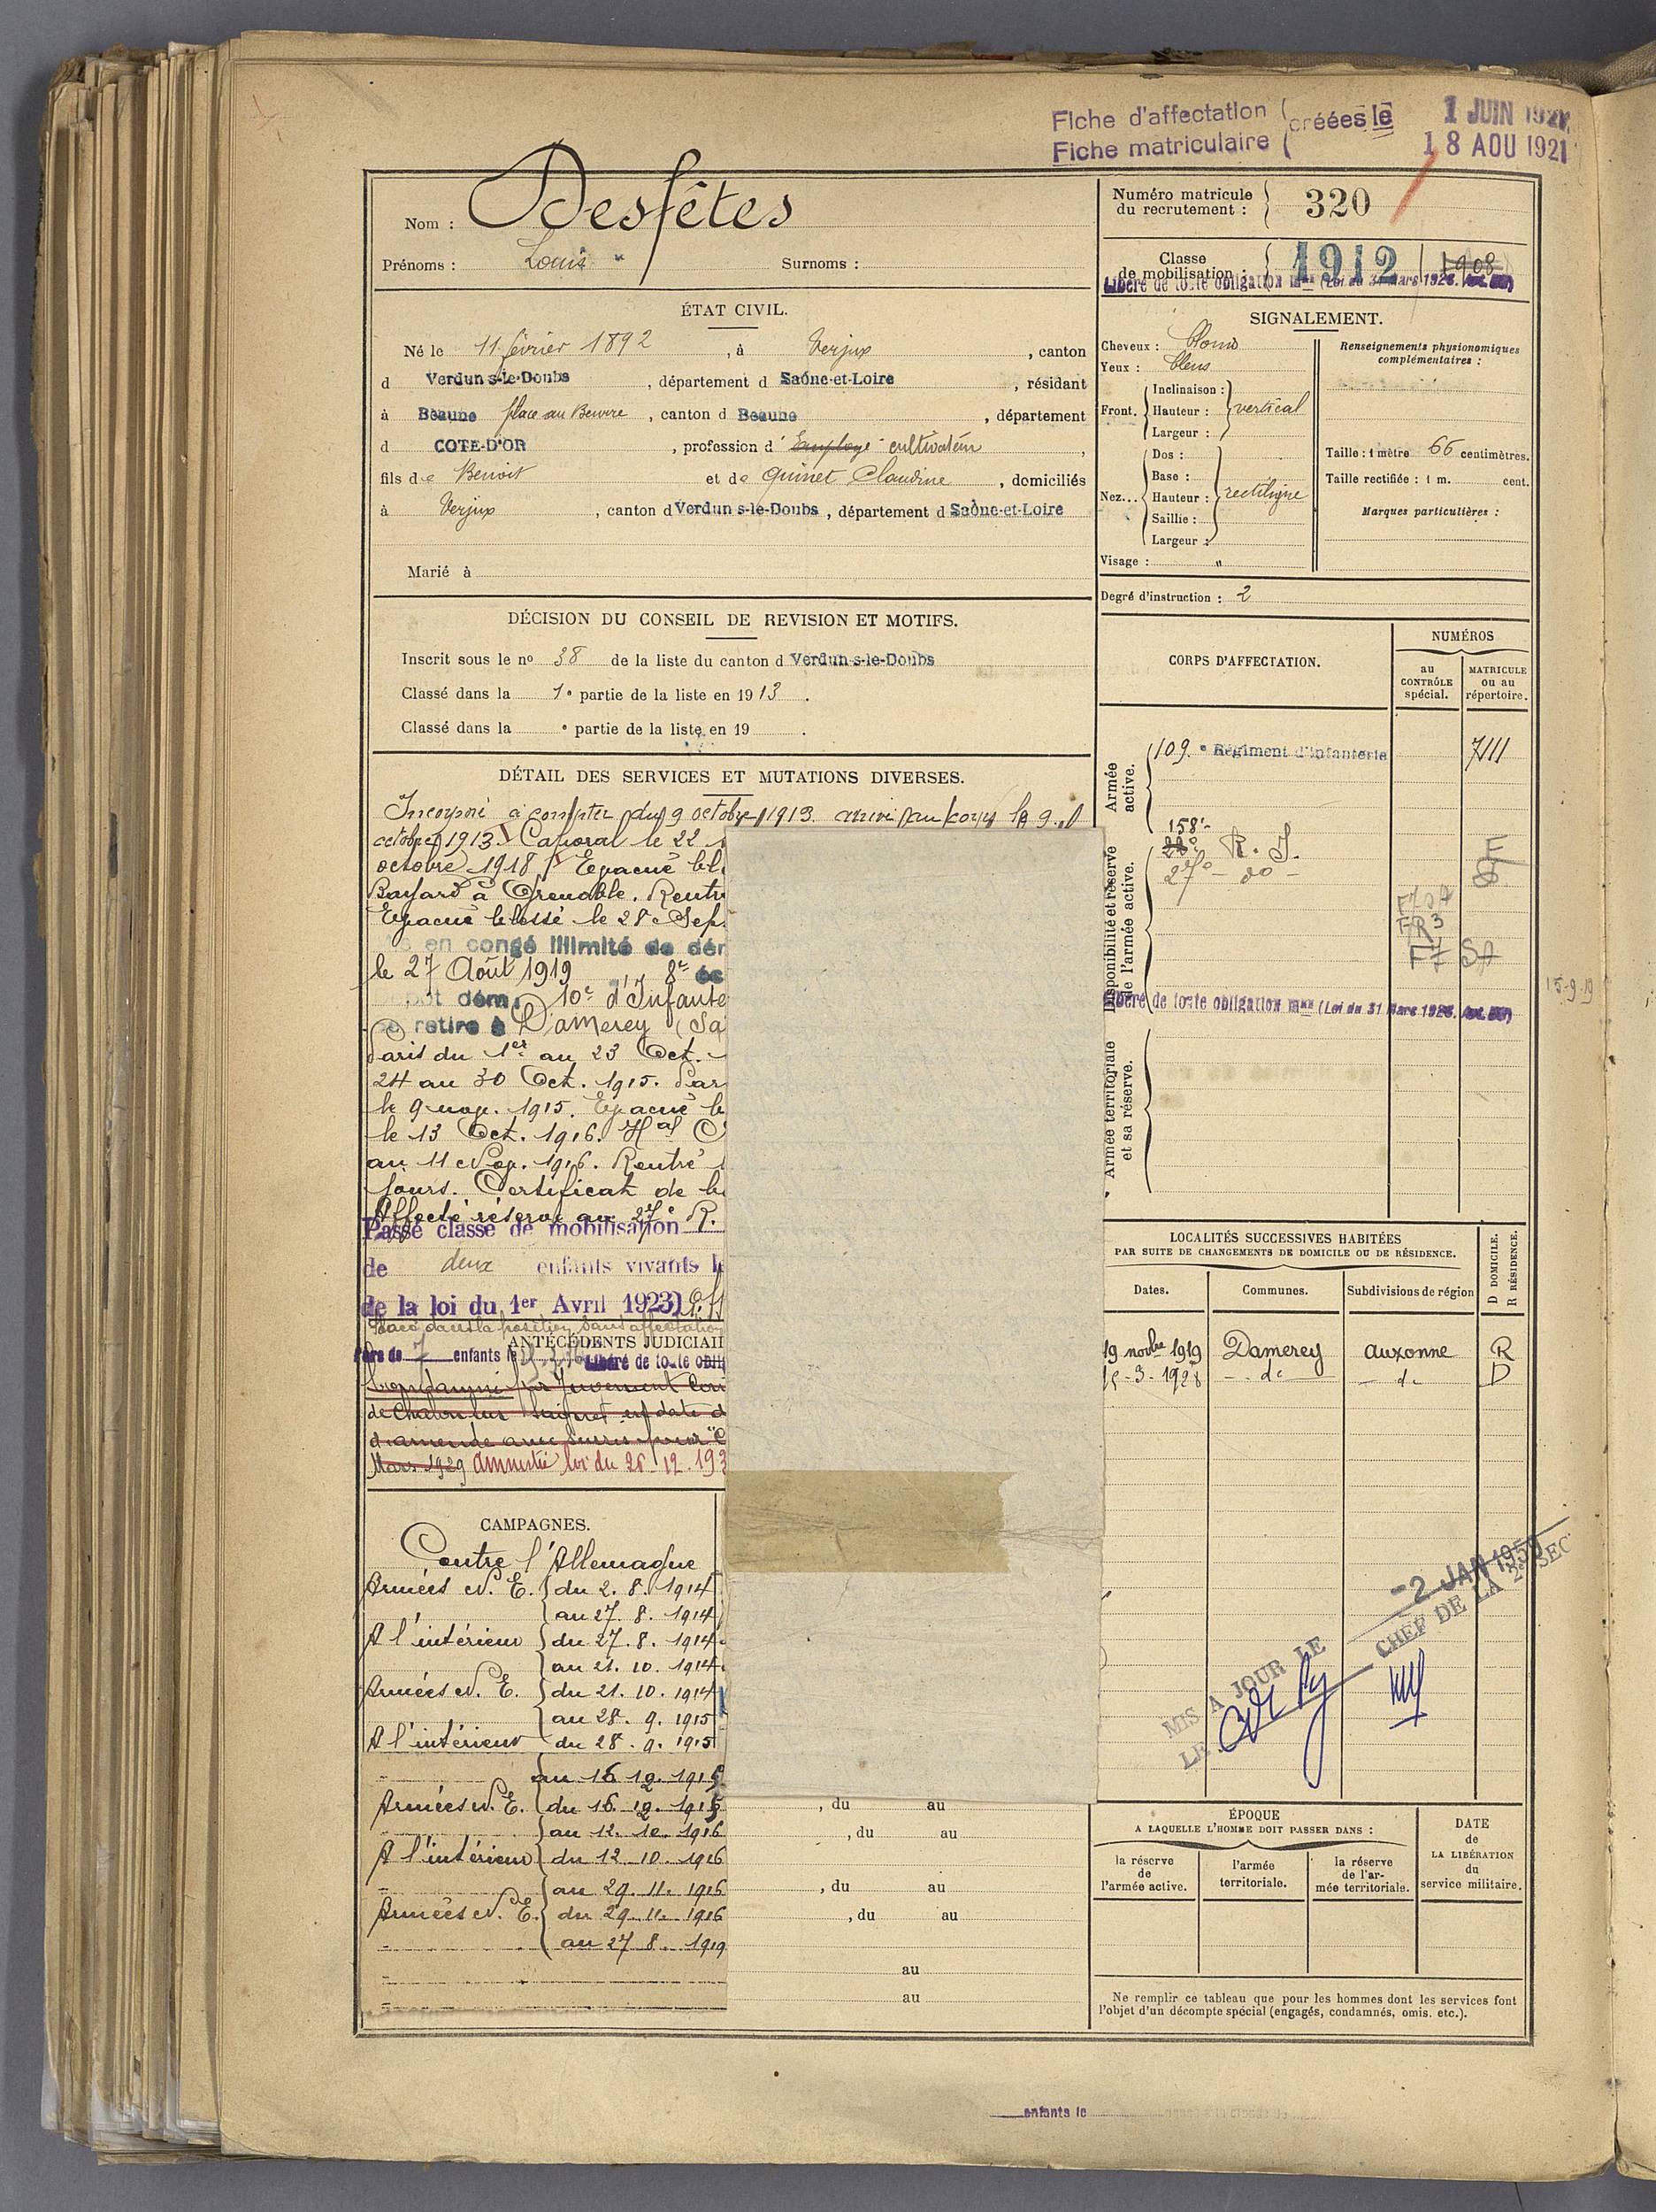 Fiche d'affectation
Fiche matriculaire
créées le
1 JUIN 1921
18 AOU 1921
Nom : Desfêtes
Prénoms : Louis Surnoms :
ÉTAT CIVIL.
Né le 11 février 1892, à Verjux, canton
d Verdun s-le-Doubs, département d Saône-et-Loire, résidant
à Beaune place au Beurre, canton d Beaune, département
d COTE-D'OR, profession d' Employé cultivateur,
fils de Benoit et de Quinet Claudine, domiciliés
à Verjux, canton d Verdun s-le-Doubs, département d Saône-et-Loire
Marié à
DÉCISION DU CONSEIL DE REVISION ET MOTIFS.
Inscrit sous le nº 38 de la liste du canton d Verdun-s-le-Doubs
Classé dans la 1e partie de la liste en 1913.
Classé dans la e partie de la liste en 19 .
DÉTAIL DES SERVICES ET MUTATIONS DIVERSES.
Incorporé à compter du 9 octobre 1913. arrivé au corps le 9
octobre 1913. Caporal le 22
octobre 1918. Evacué bl
Bayard à Grenoble. Rentr
Evacué blessé le 28 Sep
en congé illimité de dé
le 27 Août 1919 8e éc
dépôt dém. 10e d'Infante
se retire à Damerey (Sa
Paris du 1er au 23 Oct.
24 au 30 Oct. 1915. Par
le 9 nov. 1915. Evacué b
le 13 Oct. 1916. Hal
au 11 Nov. 1916. Rentré
jours. Certificat de b
Affecté réserve au 27e R.
Passé classe de mobilisation
de deux enfants vivants
de la loi du 1er Avril 1923)
Placé dans la position sans affectation
ANTÉCÉDENTS JUDICIAI
Père de 7 enfants le
Libéré de toute obli
Condamné par Jugement
de Chalon sur Saône en date d
d'amende avec sursis pour
Mars 1929 Amnistié loi du 26-12-193
CAMPAGNES.
Contre l'Allemagne
Armées N. E. du 2. 8. 1914
au 27. 8. 1914
A l'intérieur du 27. 8. 1914
au 21. 10. 1914
Armées N. E. du 21. 10. 1914
au 28. 9. 1915
A l'intérieur du 28. 9. 1915
au 16 12. 1915
Armées N. E. du 16. 12. 1915
au 12. 10. 1916
A l'intérieur du 12 10. 1916
au 29. 11. 1916
Armées N. E. du 29. 11. 1916
au 27 8. 1919
, du au
, du au
, du au
, du au
au
au
Numéro matricule
du recrutement : 320
Classe
de mobilisation : 1912 1908
Libéré de toute obligation mre (Loi du 31 Mars 1928.
SIGNALEMENT.
Cheveux : blond
Yeux : bleus
Front. Inclinaison :
Hauteur : vertical
Largeur :
Nez... Dos :
Base :
Hauteur : rectiligne
Saillie :
Largeur :
Visage : "
Renseignements physionomiques
complémentaires :
Taille : 1 mètre 66 centimètres.
Taille rectifiée : 1 m. cent.
Marques particulières :
Degré d'instruction : 2
CORPS D'AFFECTATION.
NUMÉROS
au
CONTRÔLE
spécial.
MATRICULE
ou au
répertoire.
Armée
active.
109e Régiment d'infanterie 7111
Disponibilité et réserve
de l'armée active.
158e
R. I.
27e do
FR3
Libéré de toute obligation mre (Loi du 31 Mars 1928.
15-9-19
Armée territoriale
et sa réserve.
LOCALITÉS SUCCESSIVES HABITÉES
PAR SUITE DE CHANGEMENTS DE DOMICILE OU DE RÉSIDENCE.
Dates. Communes. Subdivisions de région
D DOMICILE.
R RÉSIDENCE.
19 novbre 1919 Damerey Auxonne R
-3-1928 - do - do D
-2 JAN 1950
CHEF DE LA 2e SEC
MIS A JOUR LE
LE
ÉPOQUE
A LAQUELLE L'HOMME DOIT PASSER DANS :
la réserve
de
l'armée active.
l'armée
territoriale.
la réserve
de l'ar-
mée territoriale.
DATE
de
LA LIBÉRATION
du
service militaire.
Ne remplir ce tableau que pour les hommes dont les services font
l'objet d'un décompte spécial (engagés, condamnés, omis, etc.).
enfants le